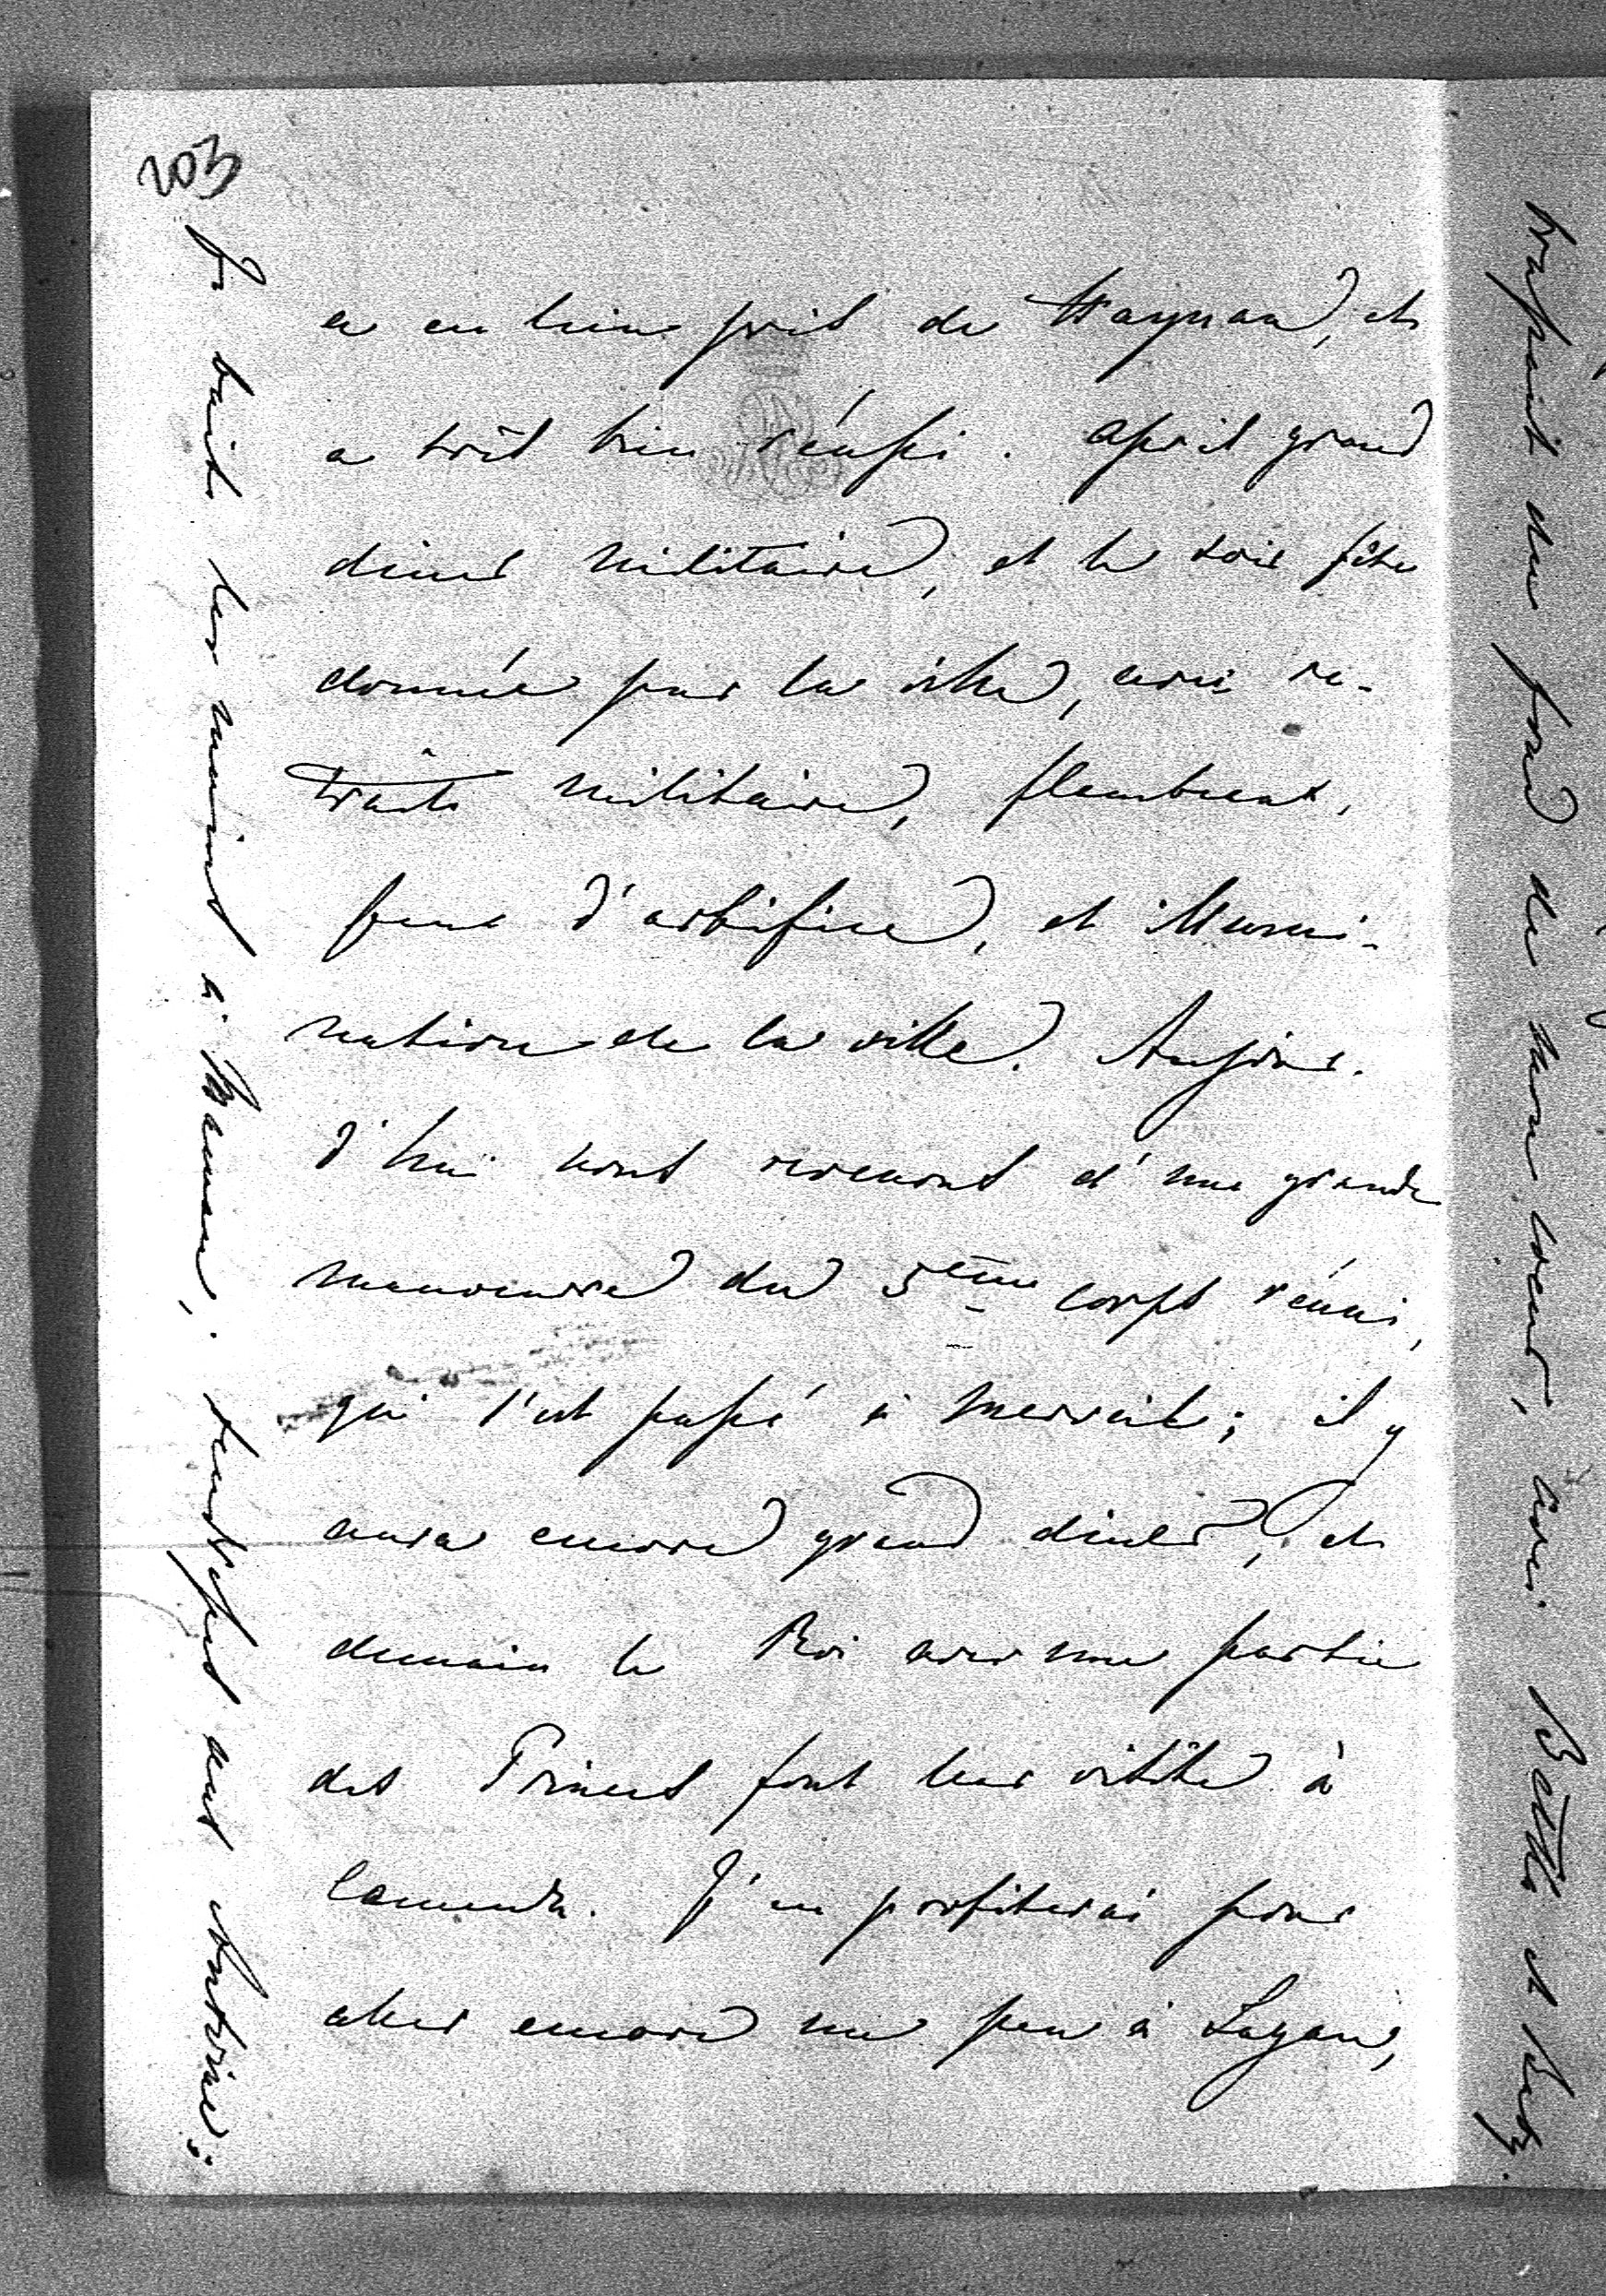 203
a eu lieu près de Haynau, et
a très bien réussi. Après grand
diner militaire, et le soir fête
donnée par la ville, avec re-
traite militaire, flambeaux,
feux d'artifice, et illumi-
nation de la ville. Aujour-
d'hui nous revenons d'une grande
manoeuvre du 5ème corps réuni,
qui s'est passé à merveile; il y
aura encore grand diner, et
demain le Roi avec une partie
des Princes font leur visite à
Camenz. J'en profiterai pour
aller encore un peu à Sagan,
Je baise les mains à Maman,
aux
du fond de mon coeur, avec et